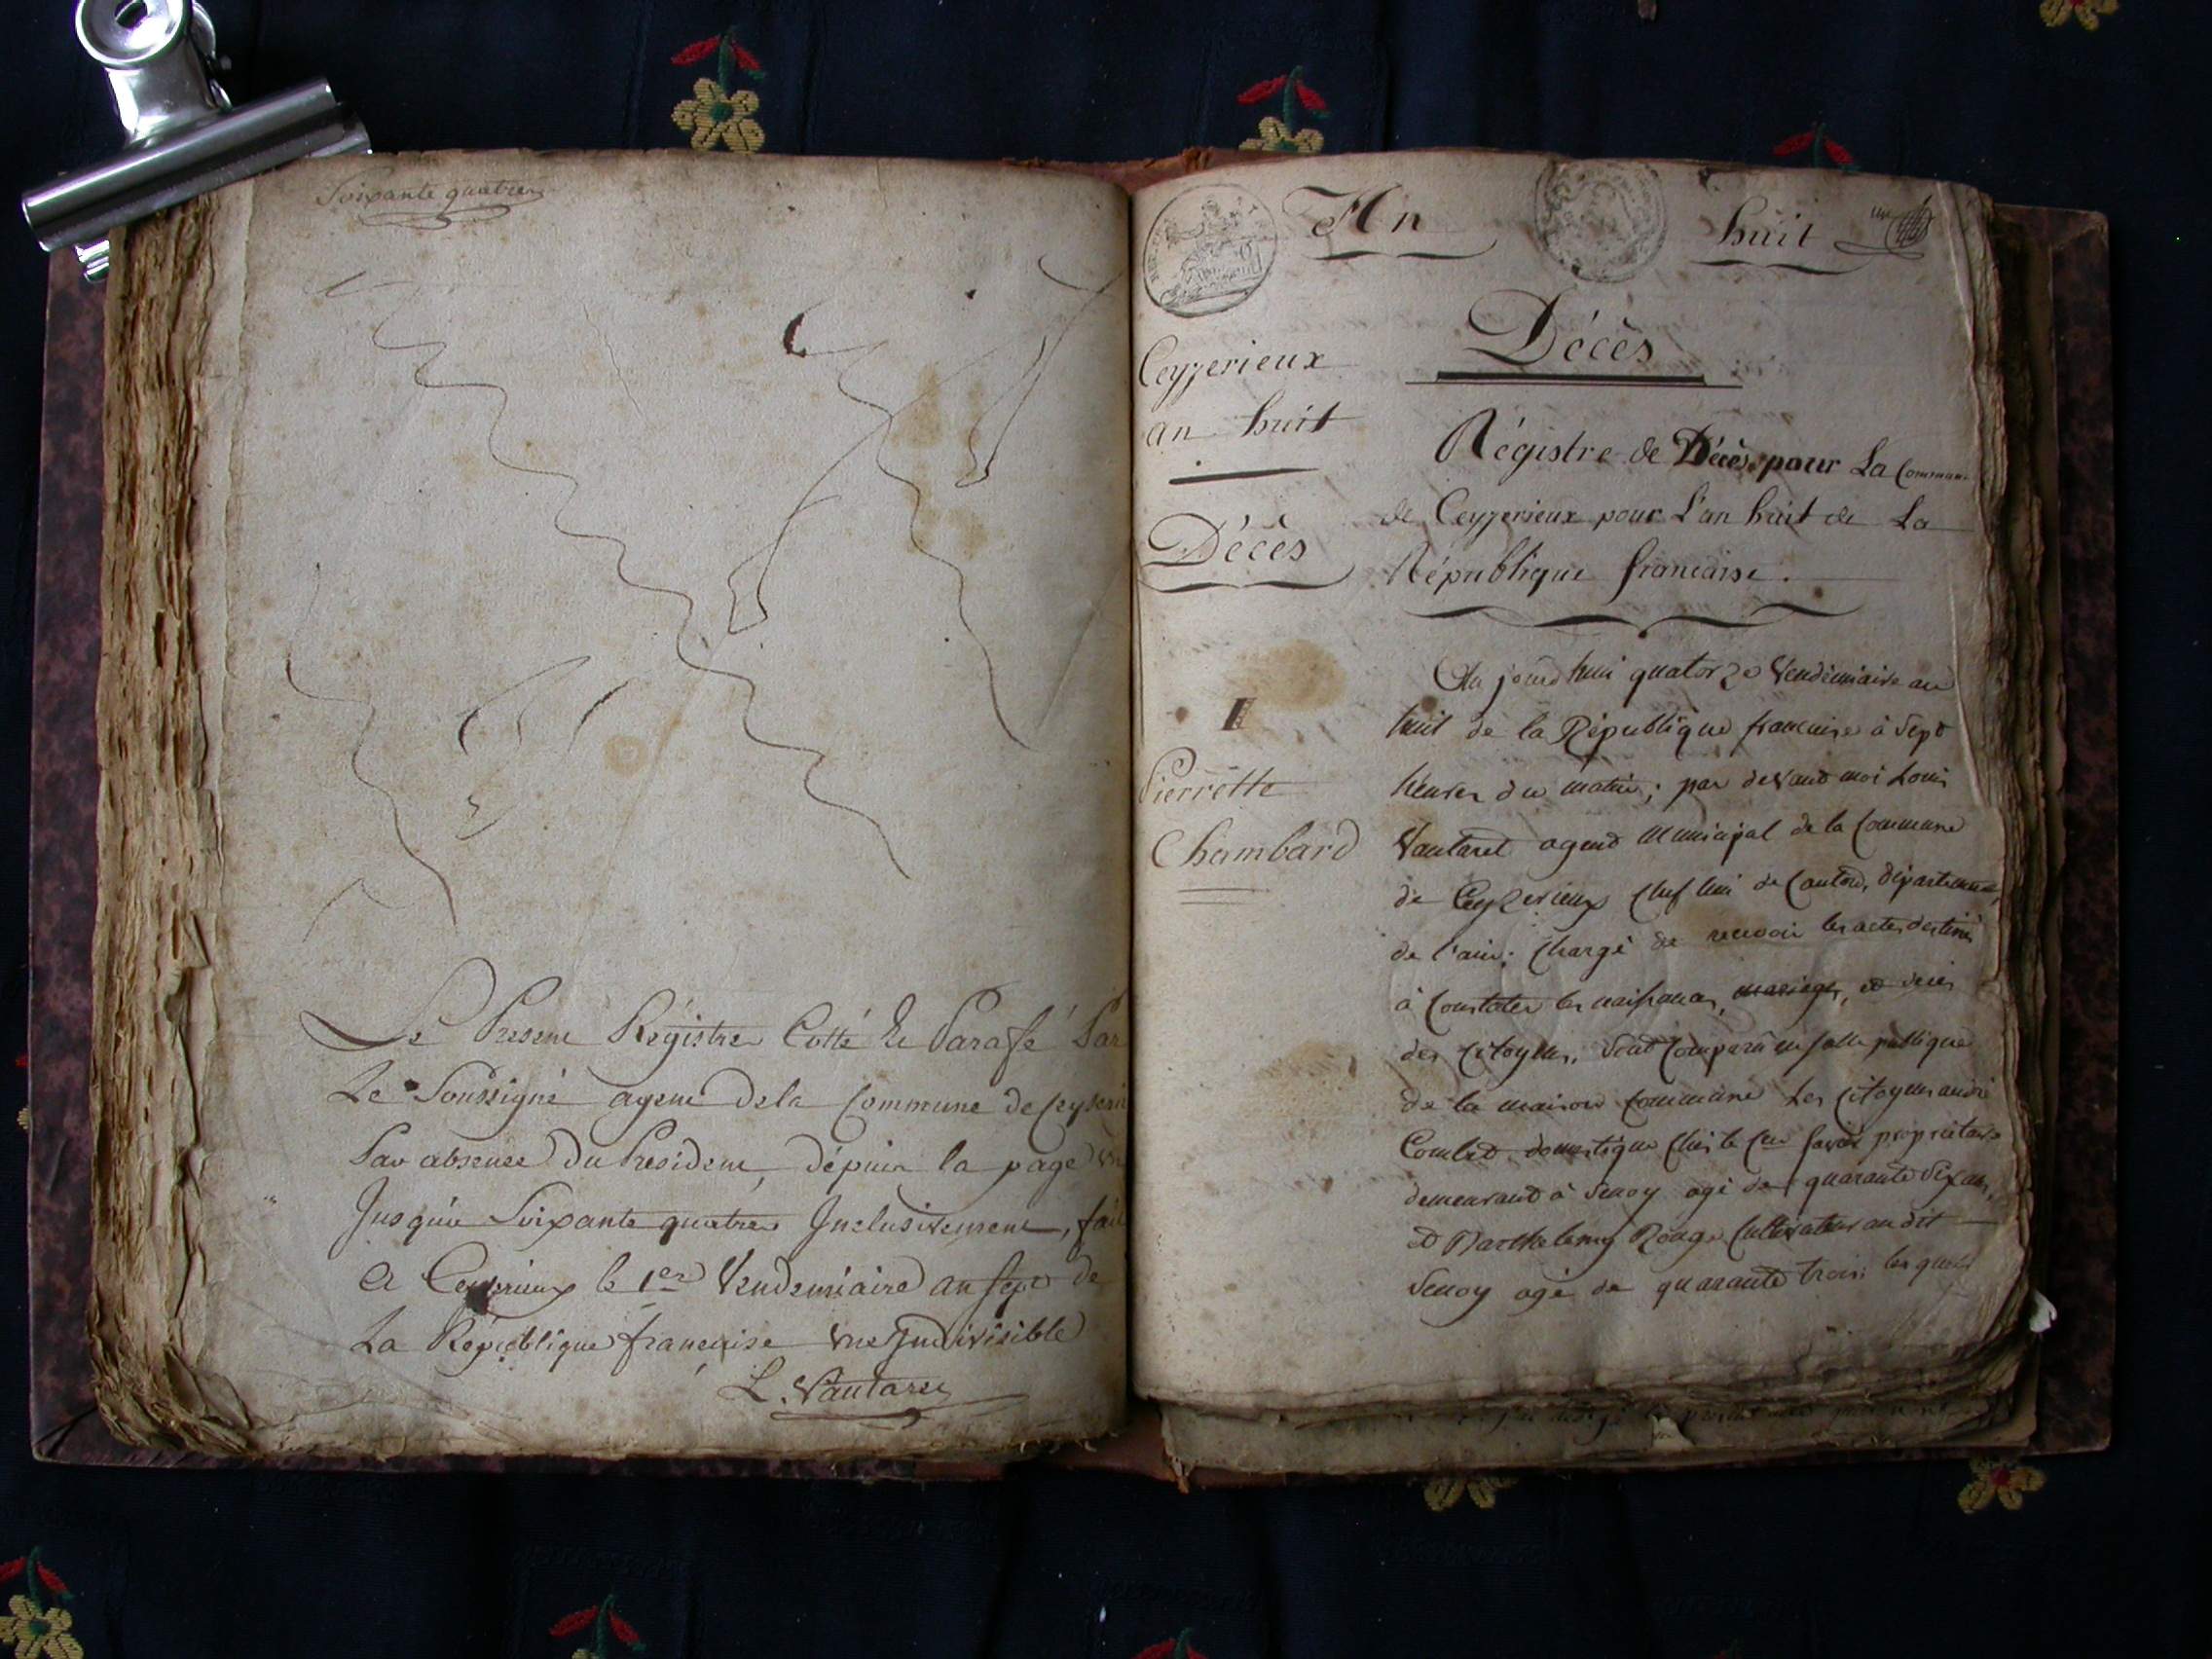 Soixante quatre
Le Present Régistre Cotté Et Parafé Par
Le Soussigné agent de la Commune de Ceyserie
Par absence du President, dépuis la page un
Jusqu'a Soixante quatre Inclusivement, fait
A Ceyserieux le 1er Vendemiaire an Sept de
La République française une Indivisible
L. Vautaret
An huit
une
Décès
Ceyzerieux
an huit
Décès
Régistre de Décès pour La Commune
de Ceyzerieux pour L'an huit de La
République francaise.
1
Pierrette
Chambard
Au jourd'hui quatorze Vendémiaire an
huit de la République francaise à Sept
heures du matin; par devant moi Louis
Vautaret agent Municipal de la Commune
de Ceyzerieux Chef lieu de Canton, département
de l'ain: Chargé de recevoir les actes destinés
à Constater les naissances, mariages, et décès
des Citoyens, Sont Comparu en salle publique
de la maison Commune Les Citoyens andré
Combet domestique Chés le Cen propriétaire
demeurant à Senoy agé de quarante Six ans,
et Barthelemy Rouge Cultivateur au dit
Senoy agé de quarante trois; les quels